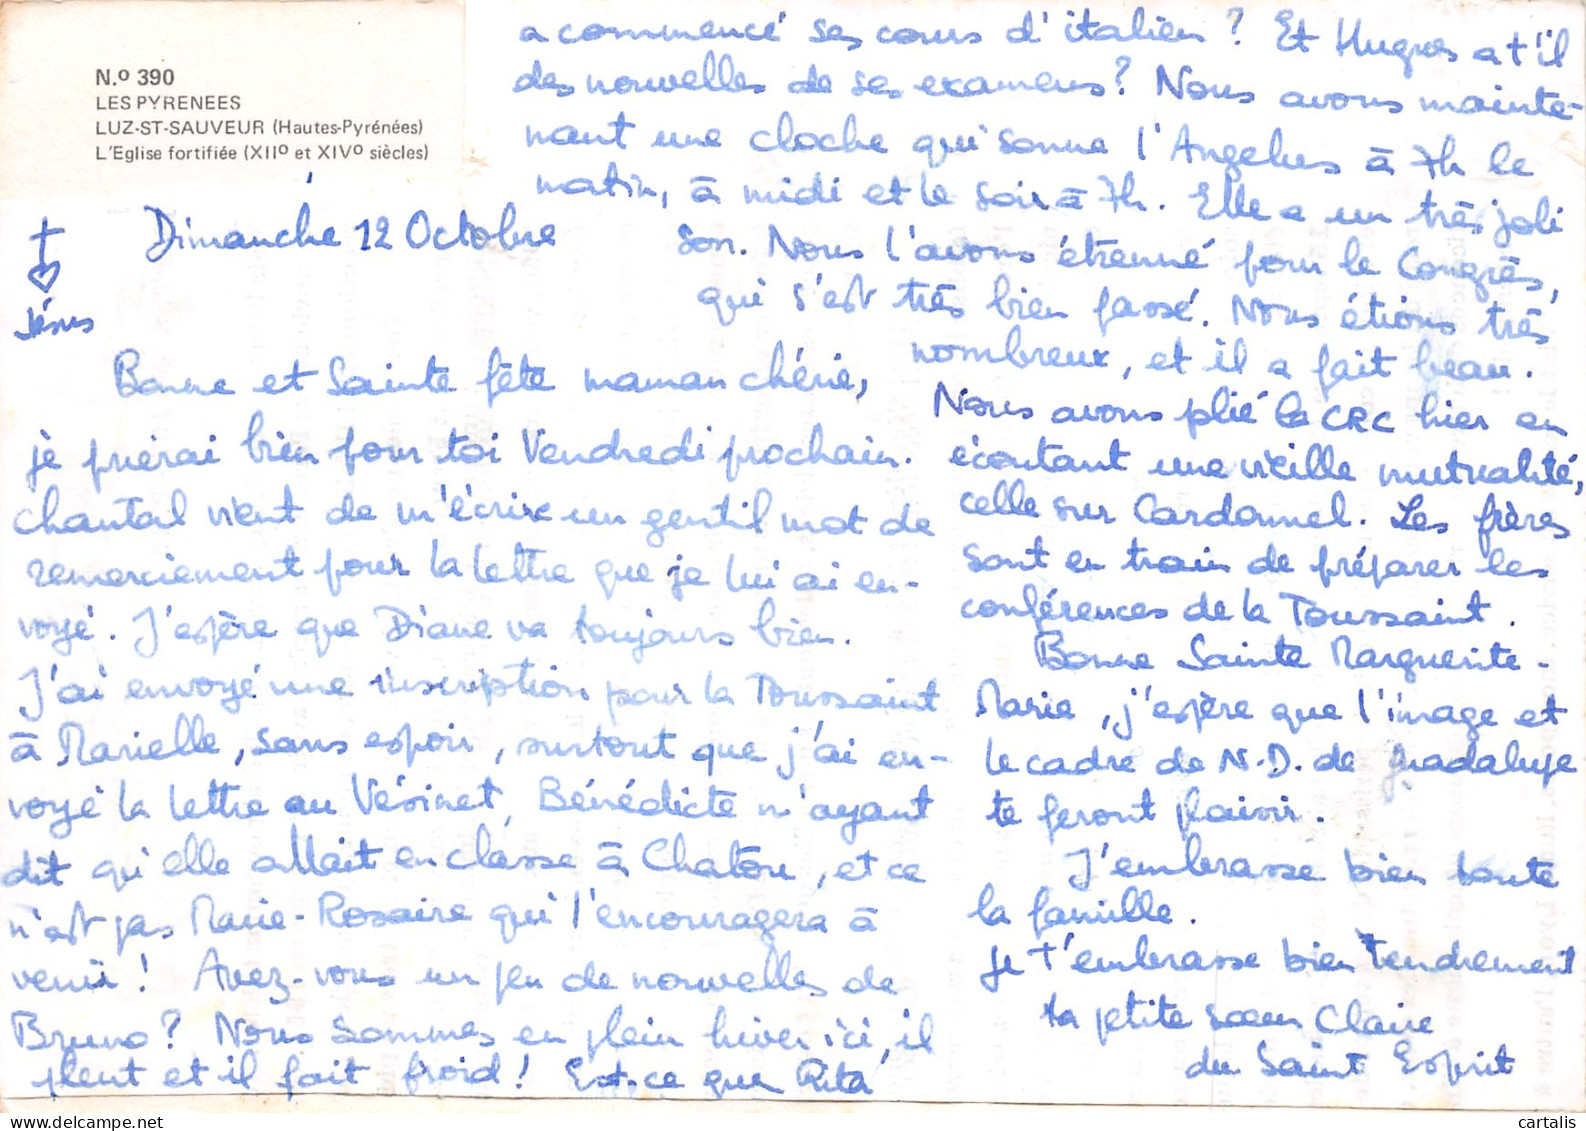 N.º 390
LES PYRENEES
LUZ-ST-SAUVEUR (Hautes-Pyrénées)
L'Eglise fortifiée (XIIº et XIVº siècles)
Jésus
Dimanche 12 Octobre
Bonne et Sainte fête maman chérie,
je prierai bien pour toi Vendredi prochain.
Chantal vient de m'écrire un gentil mot de
remerciement pour la lettre que je lui ai en-
voyé. J'espère que Diane va toujours bien.
J'ai envoyé une inscription pour la Toussaint
à Marielle, sans espoir, surtout que j'ai en-
voyé la lettre au Vésinet, Bénédicte m'ayant
dit qu'elle allait en classe à Chatou, et ce
n'est pas Marie-Rosaire qui l'encouragera à
venir ! Avez-vous un peu de nouvelles de
Bruno ? Nous sommes en plein hiver ici, il
pleut et il fait froid ! Est-ce que Rita
a commencé ses cours d'italien ? Et Hugues a t'il
des nouvelles de ses examens ? Nous avons mainte-
nant une cloche qui sonne l'Angelus à 7h le
matin, à midi et le soir à 7h. Elle a un très joli
son. Nous l'avons étrenné pour le Congrès,
qui s'est très bien passé. Nous étions très
nombreux, et il a fait beau.
Nous avons plié la CRC hier en
écoutant une vieille mutualité,
celle sur Cardonnel. Les frères
sont en train de préparer les
conférences de la Toussaint.
Bonne Sainte Marguerite-
Marie, j'espère que l'image et
le cadre de N.D. de guadalupe
te feront plaisir.
J'embrasse bien toute
la famille.
Je t'embrasse bien tendrement
ta petite soeur Claire
du Saint Esprit
cartalis